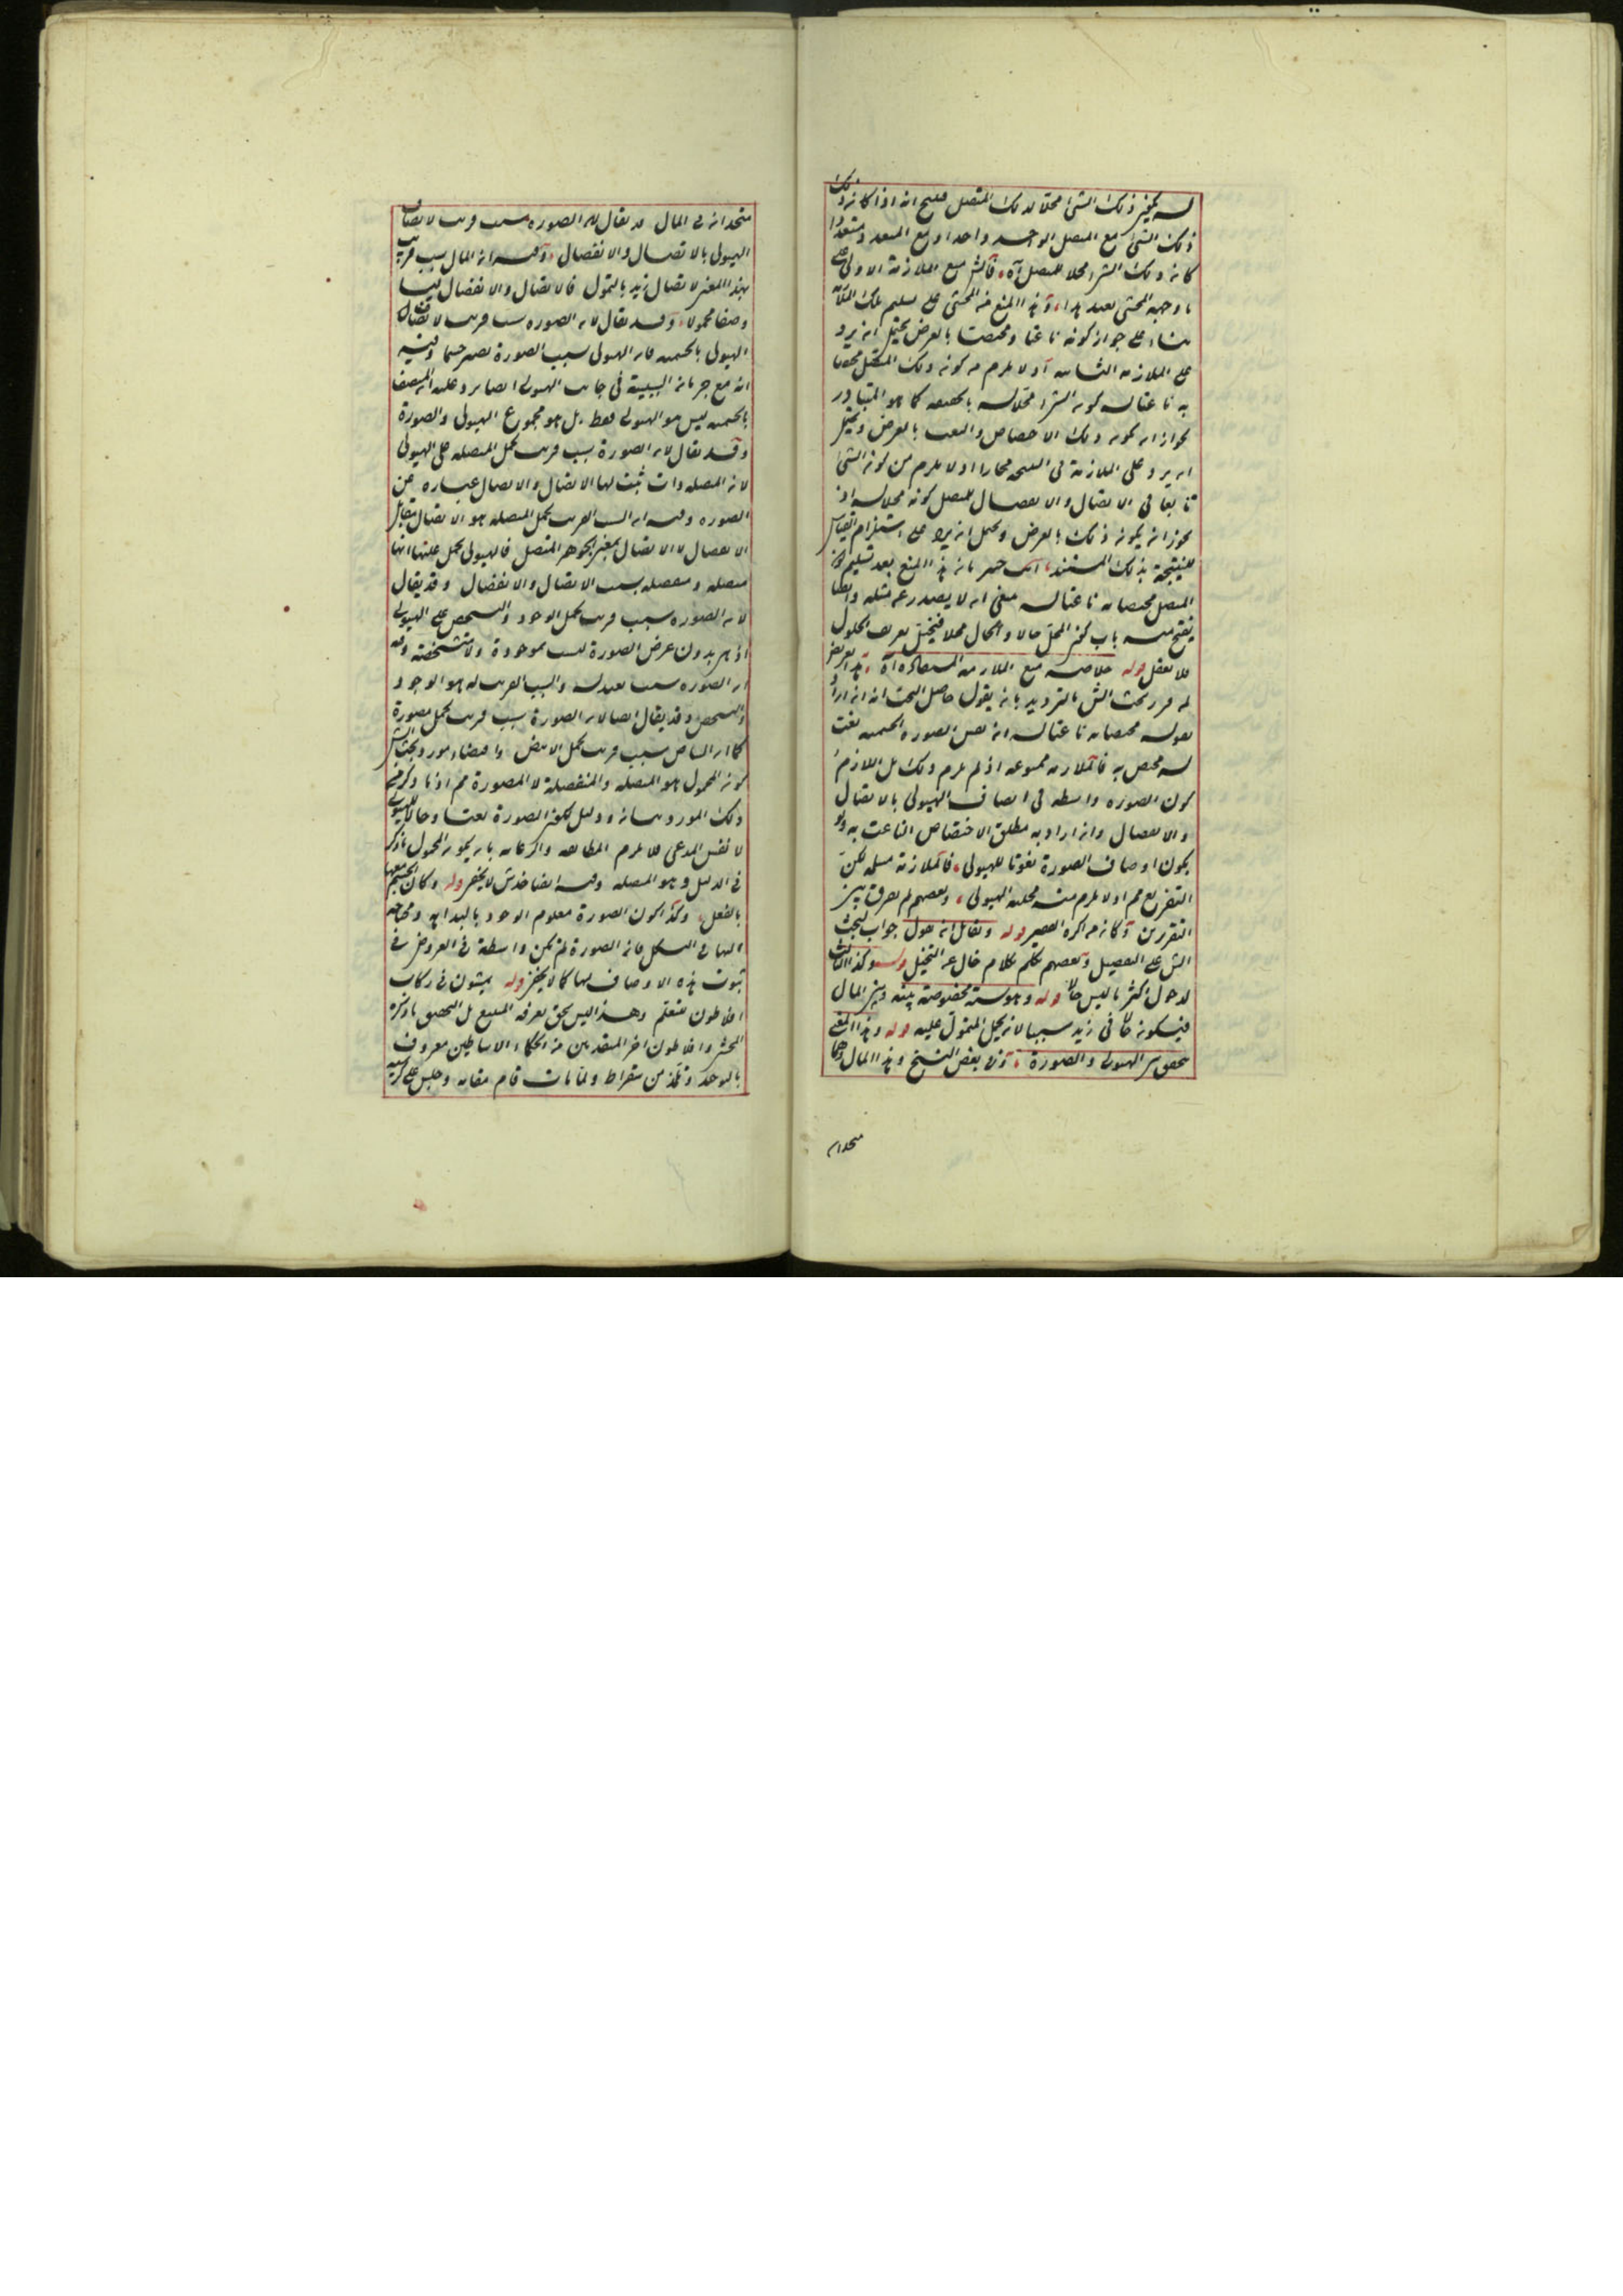 ذلك الشئ مع المتصل الواحد واحدا ومع المتعدد متعددا
كان ذلك الشئ محلا للمتصل آه، منع الملازمة الاولى
ما وجهه المحشى بعد هذا، وهذا المنع من المحشى على تسليم تلك
بناء على جواز كونه ناعتا ومختصا بالعرض يحتمل ان يرد
على الملازمة الثانية اذ لا يلزم من كون ذلك المتصل مختصا
به ناعتا له كون الشئ محلا له بالحقيقة كما هو المتبادر
لجواز ان يكون ذلك الاختصاص والنعت بالعرض ويحتمل
ان يرد على الملازمة فى النتيجة اذ لا يلزم من كون الشئ
تابعا فى الاتصال والانفصال للمتصل كونه محلا له اذ
يجوز ان يكون ذلك بالعرض ويحتمل ان يرد على استلزام القياس
للنتيجة بذلك المستند، انت خبير بان هذا المنع بعد تسليم كون
المتصل مختصا به ناعتا له معنى ان لا يصدر عن مثله وايضا
يفتح منه باب كون المحل حالا والحال محلا فيختل تعريف الحلول
فلا تعقل قوله خلاصته منع الملازمة
قرر بحث الش بالترديد بان يقول حاصل البحث انه ان اراد
بقوله مختصا به ناعتا له ان نفس الصورة الجسمية نعت
له مختص به فالملازمة ممنوعة اذ لم يلزم ذلك بل اللازم
كون الصورة واسطة فى اتصاف الهيولى بالاتصال
والانفصال وان اراد به مطلق الاختصاص الناعت به ولو
بكون اوصاف الصورة نعوتا للهيولى، فالملازمة مسلمة لكن
التفريع مم اذ لا يلزم منه محلية الهيولى، وبعضهم لم يفرق بين
التقريرين قوله ولقائل ان يقول جواب لبحث
الش على التفصيل وبعضهم تكلم بكلام خال عن التخيل قوله وكذا الثالث
لدخول اكثر ما ليس حالا قوله وهو نسبة مخصوصة بينه وبين المال
فيكون حالا فى زيد سببا لان يحمل المتمول عليه قوله وهذا المعنى
يتحقق بين الهيولى والصورة، وفى بعض النسخ وهذا المال وهما
متحدان
متحدان فى المال قد يقال لان الصورة سبب قريب لاتصاف
الهيولى بالاتصال والانفصال، وفيه ان المال سبب قريب
بهذا المعنى لاتصاف زيد بالتمول فالاتصال والانفصال ليسا
وصفا محمولا، وقد يقال لان الصورة سبب قريب لاتصاف
الهيولى بالجسمية فان الهيولى بسبب الصورة تصير جسما وفيه
انه مع جريان السببية فى جانب الهيولى ايضا يرد عليه المتصف
بالجسمية ليس هو الهيولى فقط بل هو مجموع الهيولى والصورة
وقد يقال لان الصورة سبب قريب لحمل المتصلة على الهيولى
لان المتصلة ذات ثبت لها الاتصال والاتصال عبارة عن
الصورة وفيه ان السبب القريب لحمل المتصلة هو الاتصال مقابل
الانفصال لا الاتصال بمعنى الجوهر المتصل فالهيولى يحمل عليها انها
متصلة ومنفصلة بسبب الاتصال والانفصال وقد يقال
لان الصورة سبب قريب لحمل الوجود والتشخص على الهيولى
اذ هى بدون عرض الصورة ليست موجودة ولا متشخصة وفيه
ان الصورة سبب بعيد له والسبب القريب له هو الوجود
والتشخص وقد يقال ايضا لان الصورة سبب قريب لحمل مصورة
كما ان البياض سبب قريب لحمل الابيض وايضا مورد بحث الش
كون المحمول هو المتصلة والمنفصلة لا المصورة مم اذ ما ذكر فى
ذلك المورد بيانه ودليل لكون الصورة نعتا وحالا للهيولى
لا نفس المدعى فلا يلزم المطابقة
فى الدليل وهو المتصلة وفيه ايضا خدش لا يخفى قوله وكان الجسم معها
بالفعل، وكذا كون الصورة معلوم الوجود بالبداهة ومحتاجة
اليها فى التشكل فان الصورة لم تكن واسطة فى العروض فى
ثبوت هذه الاوصاف لها كما لا يخفى قوله يمشون فى ركاب
افلاطون
المحشى وافلاطون اخر المتقدمين من الحكماء الاساطين معروف
بالتوحيد وتلمذ من سقراط ولما مات قام مقامه وجلس على كرسيه